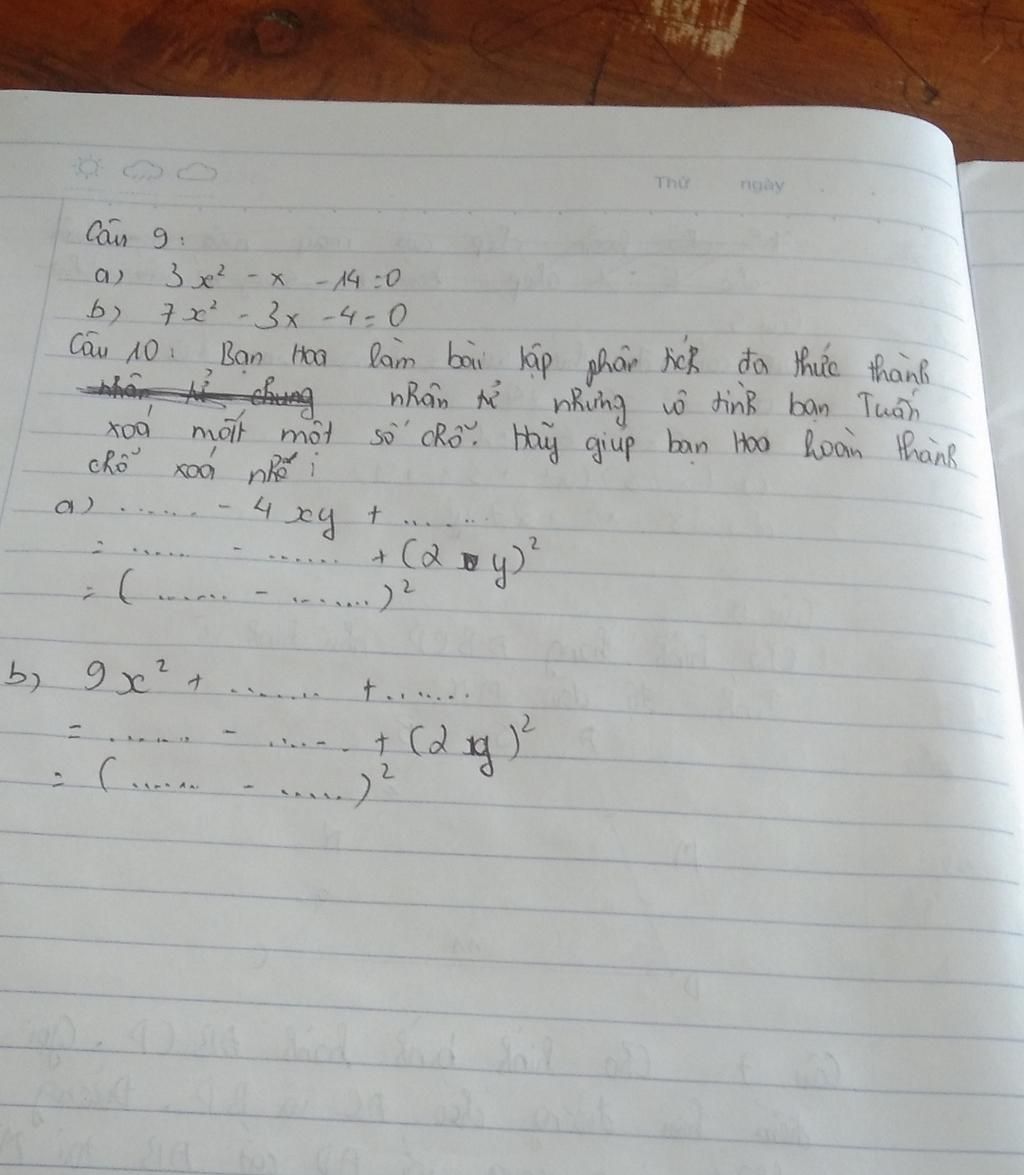 Thứ ngày
Câu 9:
a) 3x² - x - 14 = 0
b) 7x² - 3x - 4 = 0
Câu 10: Bạn Hoa làm bài tập phân tích đa thức thành
nhân tử chung nhân tử nhưng vô tình bạn Tuấn
xoá mất một số chỗ. Hãy giúp bạn Hoa hoàn thành
chỗ xoá nhé:
a) ...... - 4xy + ......
= ...... - ....... + (2y)²
= (....... - ........)²
b) 9x² + ........ + .......
= ...... - ...... + (2y)²
= (....... - ......)²